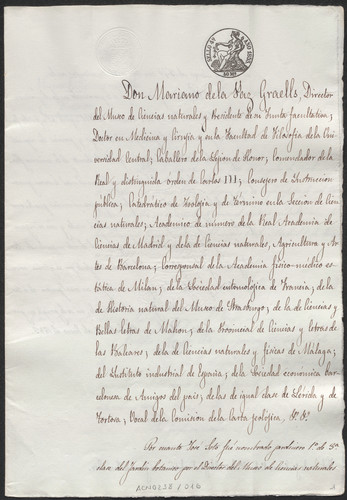 Don Mariano de la Paz Graells, Director
del Museo de Ciencias naturales y Presidente de su Junta facultativa;
Doctor en Medicina y Cirujia y en la Facultad de Filosofia de la Uni-
versidad Central; Caballero de la Lejion de Honor; comendador de la
Real y distinguida orden de Carlos III; Consejero de Instruccion
pública; Catedrático de Zoolojia y de término en la Seccion de Cien-
cias naturales; Academico de número de la Real Academia de
Ciencias de Madrid y de la de Ciencias naturales, Agricultura y Ar-
tes de Barcelona; Corresponsal de la Academia fisico-médico es-
tática de Milan; de la Sociedad entomolójica de Francia; de la
de Historia natural del Museo de Strasburgo; de la de Ciencias y
Bellas letras de Mahon; de la Provincial de Ciencias y letras de
las Baleares; de la de Ciencias naturales y fisicas de Málaga;
del Instituto industrial de España; de la Sociedad economica bar-
celonesa de Amigos del pais; de las de igual clase de Lérida y de
Tortosa; Vocal de la Comision de la Carta jeolójica, &ª. &ª.
Por cuanto José Soto fué nombrado jardinero 1º de 3ª
clase del Jardin botanico por el Director del Museo de Ciencias naturales
ACN0238/016